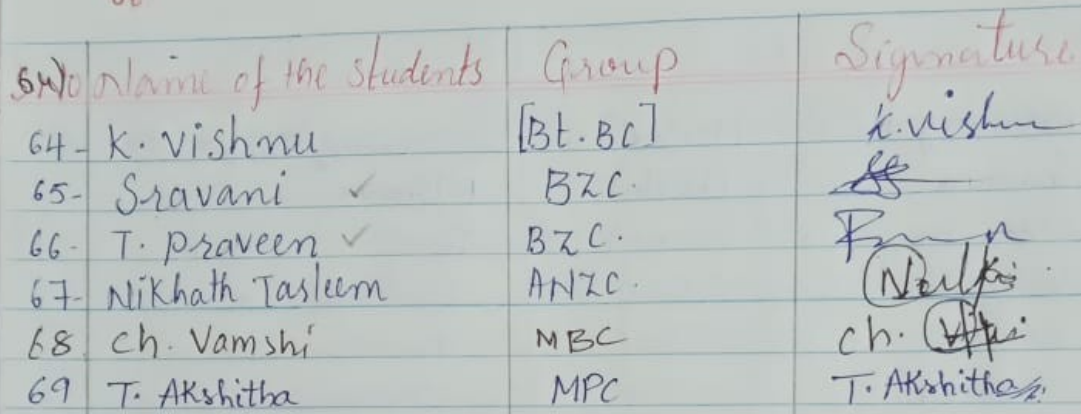 S.No Name of the students Group Signature
64- K. Vishnu [Bt.BC] K. Vishnu
65- Sravani ✓ BZC.
66- T. Praveen ✓ BZC.
67- Nikhath Tasleem ANZC.
68 Ch. Vamshi MBC Ch.
69 T. AKshitha MPC T. AKshitha